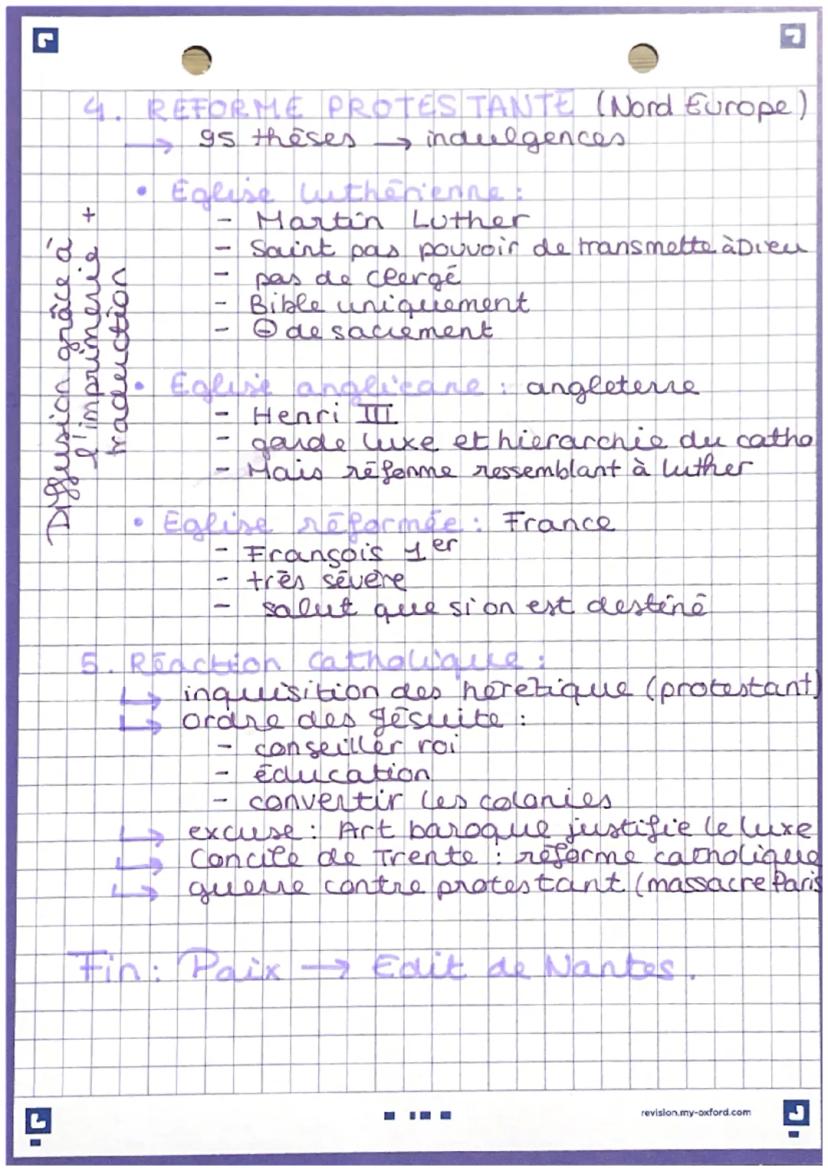 4. REFORME PROTESTANTE (Nord Europe)
→ 95 thèses → indulgences
• Eglise luthérienne :
- Martin Luther
- Saint pas pouvoir de transmette à Dieu
- pas de clergé
- Bible uniquement
- ⊖ de sacrement
• Eglise anglicane : angleterre
- Henri III
- garde luxe et hierarchie du catho
- Mais réforme ressemblant à luther
• Eglise réformée : France
- François 1er
- très sévère
- salut que si on est destiné
Diffusion grâce à
l'imprimerie +
traduction
5. Réaction catholique :
↳ inquisition des hérétique (protestant)
↳ ordre des Jésuite :
- conseiller roi
- éducation
- convertir les colonies
↳ excuse : Art baroque justifie le luxe
↳ Concile de Trente : réforme catholique
↳ guerre contre protestant (massacre Paris
Fin : Paix → Edit de Nantes.
revision.my-oxford.com